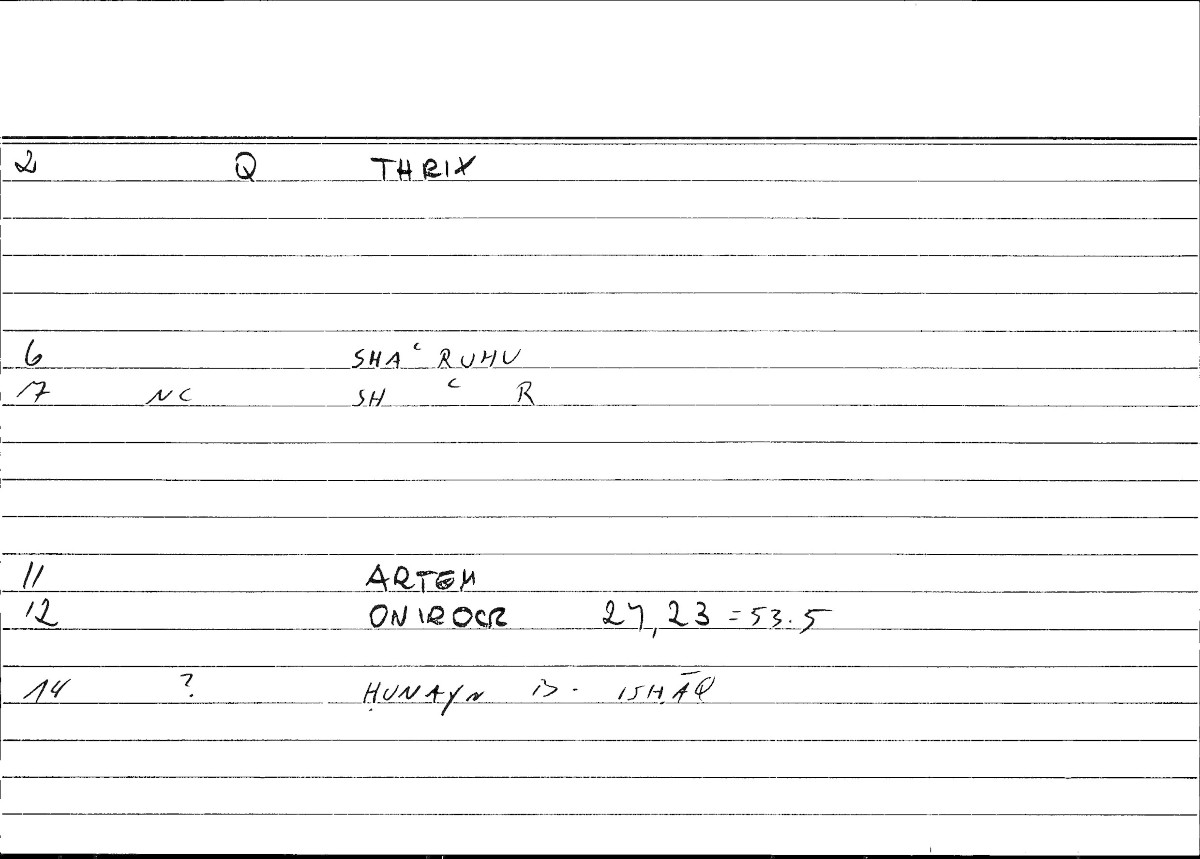 2 Q THRIX
6 SHAʿRUHU
7 NC SH ʿ R
11 ARTEM
12 ONIROCR 27,23 = 53.5
14 ? ḤUNAYN B. ISḤĀQ